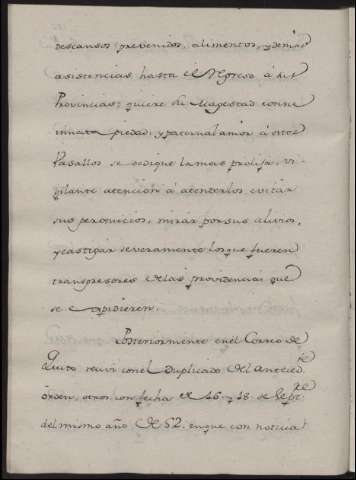 descansos prevenidos, alimentos, y demas
asistencias hasta el Regreso à sus
Provincias: quiere su Magestad con ne
innata piedad, y paternal amor à estos
Vasallos se dedique la mas prolija, vi
gilante atencion à atenderlos evitar
sus perjuicios, mirar por sus alivios,
y castigar severamente los que fueren
transgresores de las providencias que
se expidieren.
Posteriormente en el Correo de
Quito recivi con el Duplicado del anteced.te
órden, otros con fecha de 16 y 18 de Sept.re
del mismo año de 52. en que con noticia